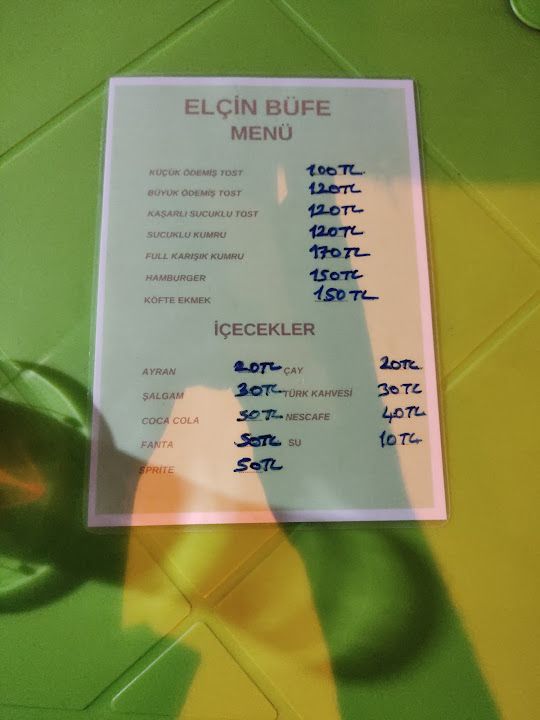 ELÇİN BÜFE
MENÜ
KÜÇÜK ÖDEMİŞ TOST 100TL
BÜYÜK ÖDEMİŞ TOST 120TL
KAŞARLI SUCUKLU TOST 120TL
SUCUKLU KUMRU 120TL
FULL KARIŞIK KUMRU 170TL
HAMBURGER 150TL
KÖFTE EKMEK 150TL
İÇECEKLER
AYRAN 20TL ÇAY 20TL
ŞALGAM 30TL TÜRK KAHVESİ 30TL
COCA COLA 50TL NESCAFE 40TL
FANTA 50TL SU 10TL
SPRİTE 50TL